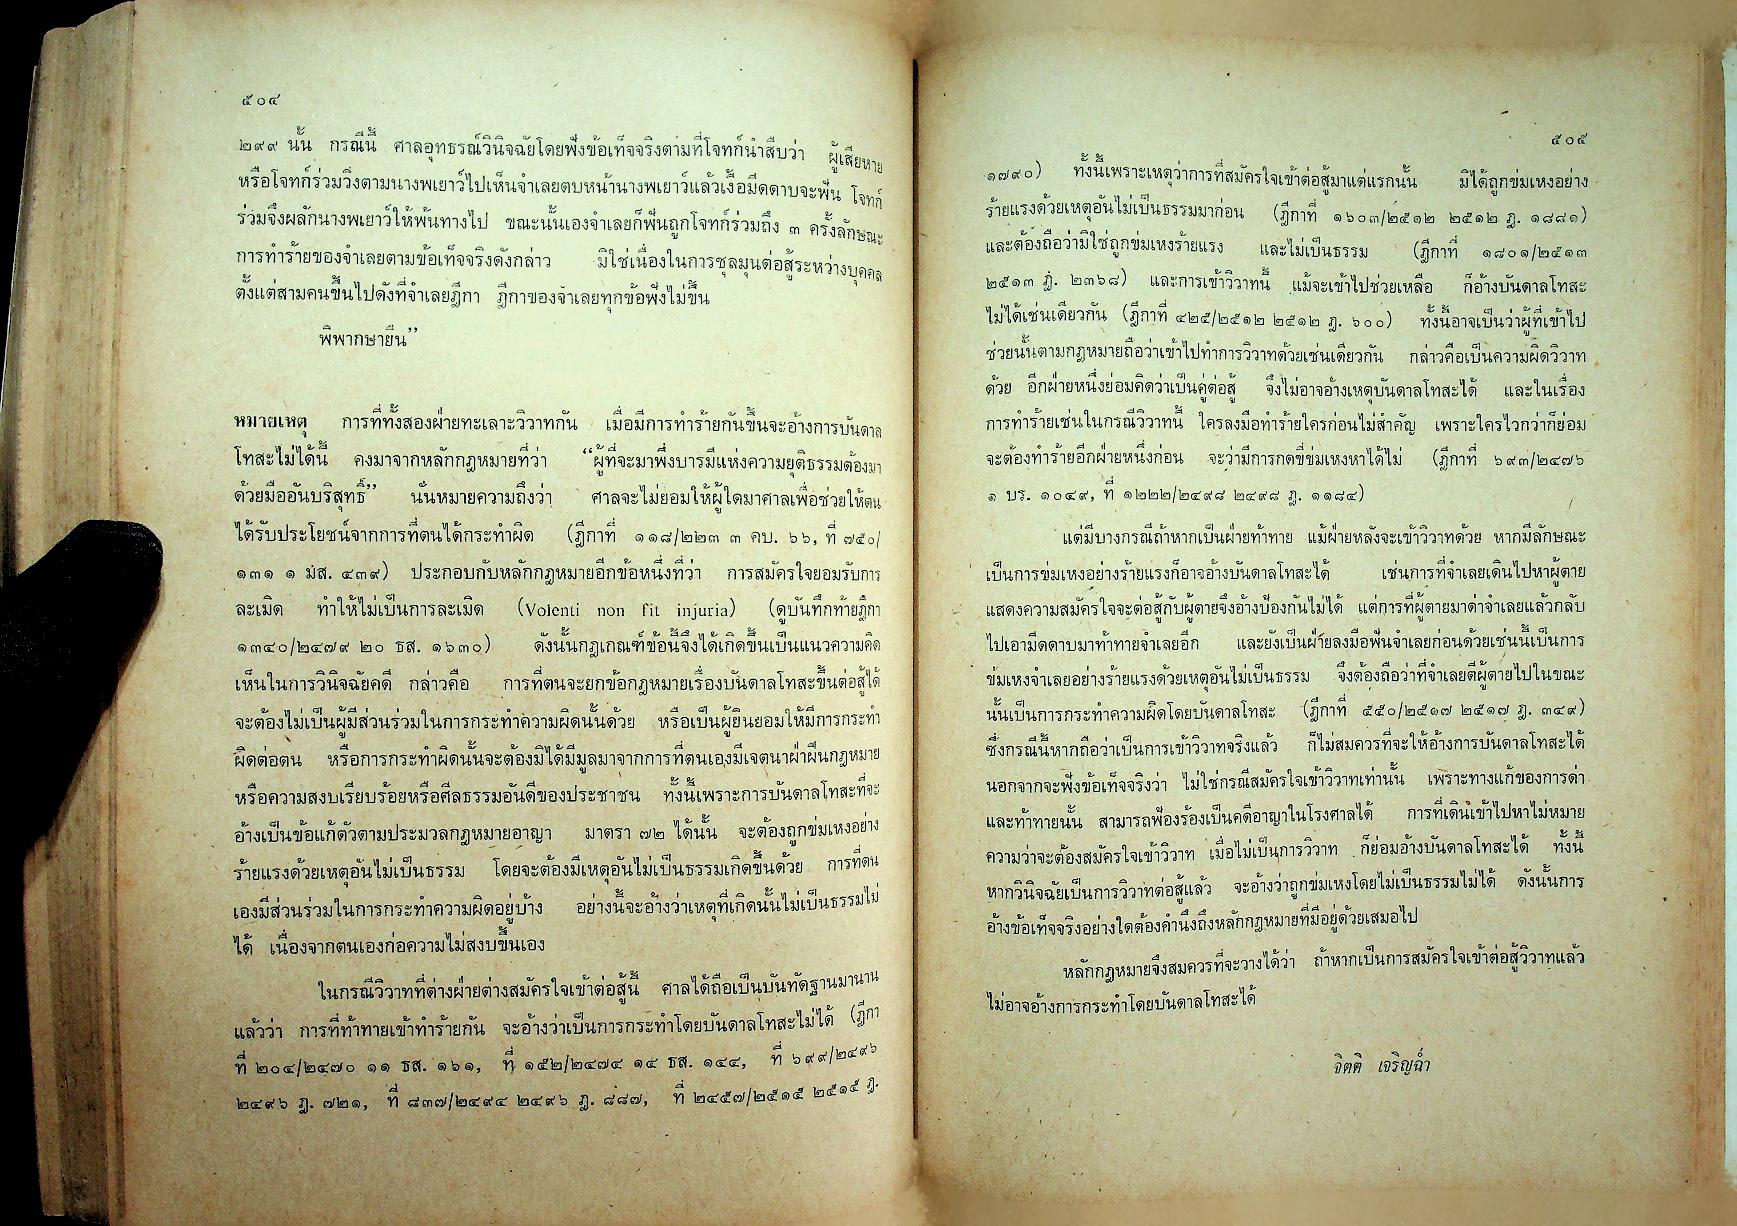 ๕๐๔
๒๙๙ นั้น กรณีนี้ ศาลอุทธรณ์วินิจฉัยโดยฟังข้อเท็จจริงตามที่โจทก์นำสืบว่า ผู้เสียหาย
หรือโจทก์ร่วมวิ่งตามนางพเยาว์ไปเห็นจำเลยตบหน้านางพเยาว์แล้วเงื้อมีดดาบจะฟัน โจทก์
ร่วมจึงผลักนางพเยาว์ให้พ้นทางไป ขณะนั้นเองจำเลยก็ฟันถูกโจทก์ร่วมถึง ๓ ครั้งลักษณะ
การทำร้ายของจำเลยตามข้อเท็จจริงดังกล่าว มิใช่เนื่องในการชุลมุนต่อสู้ระหว่างบุคคล
ตั้งแต่สามคนขึ้นไปดังที่จำเลยฎีกา ฎีกาของจำเลยทุกข้อฟังไม่ขึ้น
พิพากษายืน”
หมายเหตุ การที่ทั้งสองฝ่ายทะเลาะวิวาทกัน เมื่อมีการทำร้ายกันขึ้นจะอ้างการบันดาล
โทสะไม่ได้นี้ คงมาจากหลักกฎหมายที่ว่า “ผู้ที่จะมาพึ่งบารมีแห่งความยุติธรรมต้องมา
ด้วยมืออันบริสุทธิ์” นั่นหมายความถึงว่า ศาลจะไม่ยอมให้ผู้ใดมาศาลเพื่อช่วยให้ตน
ได้รับประโยชน์จากการที่ตนได้กระทำผิด (ฎีกาที่ ๑๑๘/๒๒๓ ๓ คบ. ๖๖, ที่ ๗๕๐/
๑๓๑ ๑ มส. ๔๓๙) ประกอบกับหลักกฎหมายอีกข้อหนึ่งที่ว่า การสมัครใจยอมรับการ
ละเมิด ทำให้ไม่เป็นการละเมิด (Volenti non fit injuria) (ดูบันทึกท้ายฎีกา
๑๓๔๐/๒๔๗๙ ๒๐ ธส. ๑๖๓๐) ดังนั้นกฎเกณฑ์ข้อนี้จึงได้เกิดขึ้นเป็นแนวความคิด
เห็นในการวินิจฉัยคดี กล่าวคือ การที่ตนจะยกข้อกฎหมายเรื่องบันดาลโทสะขึ้นต่อสู้ได้
จะต้องไม่เป็นผู้มีส่วนร่วมในการกระทำความผิดนั้นด้วย หรือเป็นผู้ยินยอมให้มีการกระทำ
ผิดต่อตน หรือการกระทำผิดนั้นจะต้องมิได้มีมูลมาจากการที่ตนเองมีเจตนาฝ่าฝืนกฎหมาย
หรือความสงบเรียบร้อยหรือศีลธรรมอันดีของประชาชน ทั้งนี้เพราะการบันดาลโทสะที่จะ
อ้างเป็นข้อแก้ตัวตามประมวลกฎหมายอาญา มาตรา ๗๒ ได้นั้น จะต้องถูกข่มเหงอย่าง
ร้ายแรงด้วยเหตุอันไม่เป็นธรรม โดยจะต้องมีเหตุอันไม่เป็นธรรมเกิดขึ้นด้วย การที่ตน
เองมีส่วนร่วมในการกระทำความผิดอยู่บ้าง อย่างนี้จะอ้างว่าเหตุที่เกิดนั้นไม่เป็นธรรมไม่
ได้ เนื่องจากตนเองก่อความไม่สงบขึ้นเอง
ในกรณีวิวาทที่ต่างฝ่ายต่างสมัครใจเข้าต่อสู้นี้ ศาลได้ถือเป็นบันทัดฐานมานาน
แล้วว่า การที่ท้าทายเข้าทำร้ายกัน จะอ้างว่าเป็นการกระทำโดยบันดาลโทสะไม่ได้ (ฎีกา
ที่ ๒๐๔/๒๔๗๐ ๑๑ ธส. ๑๖๑, ที่ ๑๕๒/๒๔๗๔ ๑๔ ธส. ๑๔๔, ที่ ๖๙๙/๒๔๙๖
๒๔๙๖ ฎ. ๗๒๑, ที่ ๘๓๗/๒๔๙๔ ๒๔๙๖ ฎ. ๘๘๗, ที่ ๒๔๕๗/๒๕๑๕ ๒๕๑๕ ฎ.
๕๐๕
๑๗๙๐) ทั้งนี้เพราะเหตุว่าการที่สมัครใจเข้าต่อสู้มาแต่แรกนั้น มิได้ถูกข่มเหงอย่าง
ร้ายแรงด้วยเหตุอันไม่เป็นธรรมมาก่อน (ฎีกาที่ ๑๖๐๓/๒๕๑๒ ๒๕๑๒ ฎ. ๑๘๘๑)
และต้องถือว่ามิใช่ถูกข่มเหงร้ายแรง และไม่เป็นธรรม (ฎีกาที่ ๑๘๐๑/๒๕๑๓
๒๕๑๓ ฎ. ๒๓๖๘) และการเข้าวิวาทนี้ แม้จะเข้าไปช่วยเหลือ ก็อ้างบันดาลโทสะ
ไม่ได้เช่นเดียวกัน (ฎีกาที่ ๔๒๕/๒๕๑๒ ๒๕๑๒ ฎ. ๖๐๐) ทั้งนี้อาจเป็นว่าผู้ที่เข้าไป
ช่วยนั้นตามกฎหมายถือว่าเข้าไปทำการวิวาทด้วยเช่นเดียวกัน กล่าวคือเป็นความผิดวิวาท
ด้วย อีกฝ่ายหนึ่งย่อมคิดว่าเป็นคู่ต่อสู้ จึงไม่อาจอ้างเหตุบันดาลโทสะได้ และในเรื่อง
การทำร้ายเช่นในกรณีวิวาทนี้ ใครลงมือทำร้ายใครก่อนไม่สำคัญ เพราะใครไวกว่าก็ย่อม
จะต้องทำร้ายอีกฝ่ายหนึ่งก่อน จะว่ามีการกดขี่ข่มเหงหาได้ไม่ (ฎีกาที่ ๖๙๓/๒๔๗๖
๑ บร. ๑๐๔๙, ที่ ๑๒๒๒/๒๔๙๘ ๒๔๙๘ ฎ. ๑๑๘๔)
แต่มีบางกรณีถ้าหากเป็นฝ่ายท้าทาย แม้ฝ่ายหลังจะเข้าวิวาทด้วย หากมีลักษณะ
เป็นการข่มเหงอย่างร้ายแรงก็อาจอ้างบันดาลโทสะได้ เช่นการที่จำเลยเดินไปหาผู้ตาย
แสดงความสมัครใจจะต่อสู้กับผู้ตายจึงอ้างป้องกันไม่ได้ แต่การที่ผู้ตายมาด่าจำเลยแล้วกลับ
ไปเอามีดดาบมาท้าทายจำเลยอีก และยังเป็นฝ่ายลงมือฟันจำเลยก่อนด้วยเช่นนี้เป็นการ
ข่มเหงจำเลยอย่างร้ายแรงด้วยเหตุอันไม่เป็นธรรม จึงต้องถือว่าที่จำเลยตีผู้ตายไปในขณะ
นั้นเป็นการกระทำความผิดโดยบันดาลโทสะ (ฎีกาที่ ๕๕๐/๒๕๑๗ ๒๕๑๗ ฎ. ๓๔๙)
ซึ่งกรณีนี้หากถือว่าเป็นการเข้าวิวาทจริงแล้ว ก็ไม่สมควรที่จะให้อ้างการบันดาลโทสะได้
นอกจากจะฟังข้อเท็จจริงว่า ไม่ใช่กรณีสมัครใจเข้าวิวาทเท่านั้น เพราะทางแก้ของการด่า
และท้าทายนั้น สามารถฟ้องร้องเป็นคดีอาญาในโรงศาลได้ การที่เดินเข้าไปหาไม่หมาย
ความว่าจะต้องสมัครใจเข้าวิวาท เมื่อไม่เป็นการวิวาท ก็ย่อมอ้างบันดาลโทสะได้ ทั้งนี้
หากวินิจฉัยเป็นการวิวาทต่อสู้แล้ว จะอ้างว่าถูกข่มเหงโดยไม่เป็นธรรมไม่ได้ ดังนั้นการ
อ้างข้อเท็จจริงอย่างใดต้องคำนึงถึงหลักกฎหมายที่มีอยู่ด้วยเสมอไป
หลักกฎหมายจึงสมควรที่จะวางได้ว่า ถ้าหากเป็นการสมัครใจเข้าต่อสู้วิวาทแล้ว
ไม่อาจอ้างการกระทำโดยบันดาลโทสะได้
จิตติ เจริญฉ่ำ